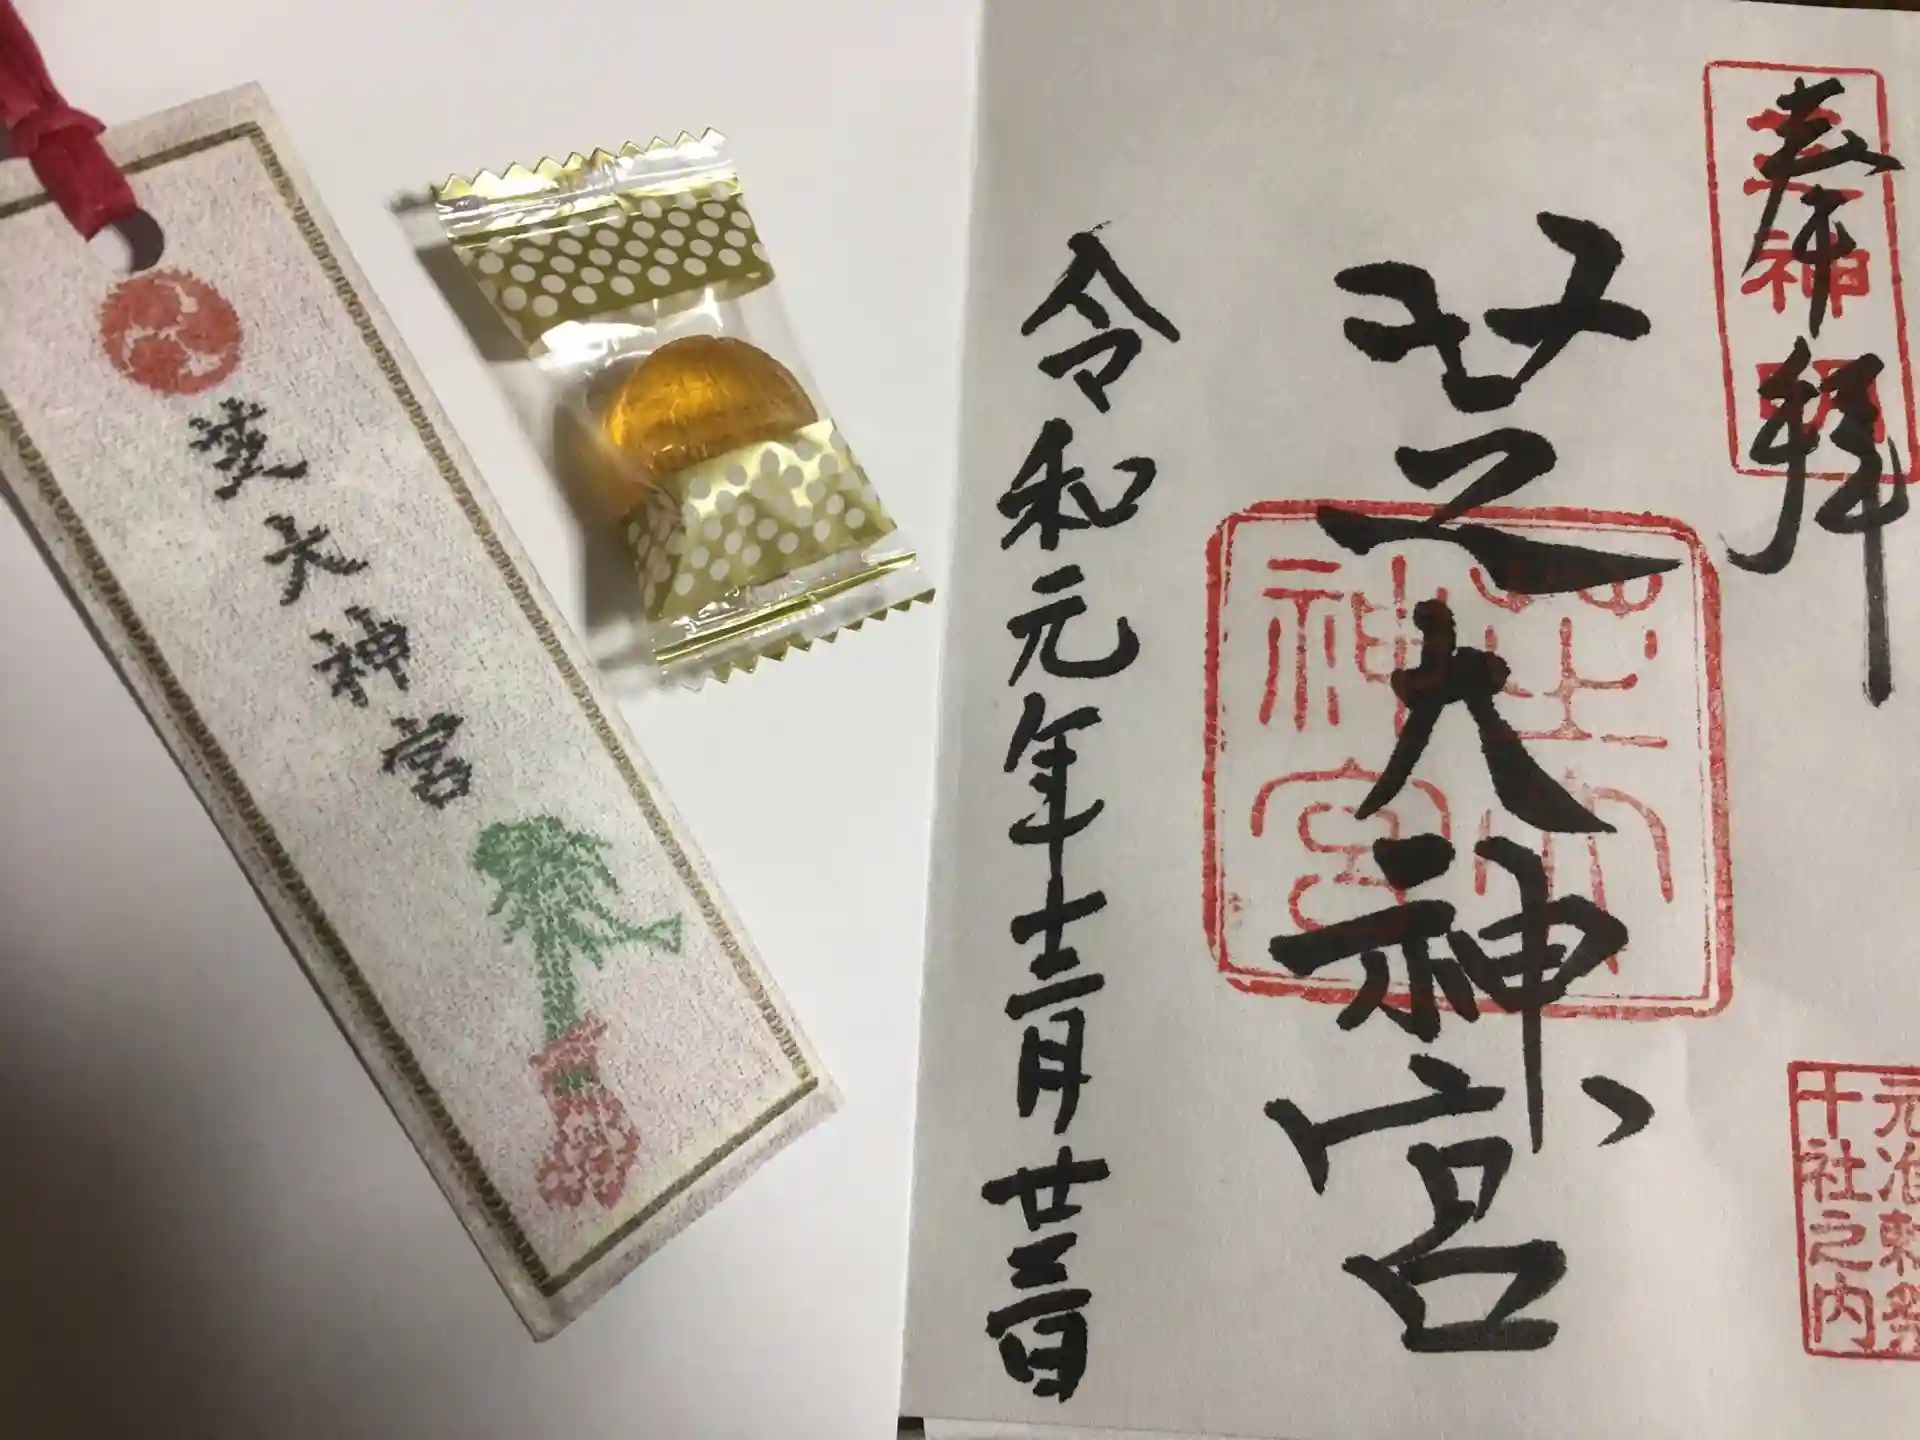 芝大神宮
奉拝
主神明
芝大神宮
芝大神宮
令和元年十二月廿三日
元准勅祭
十社之内